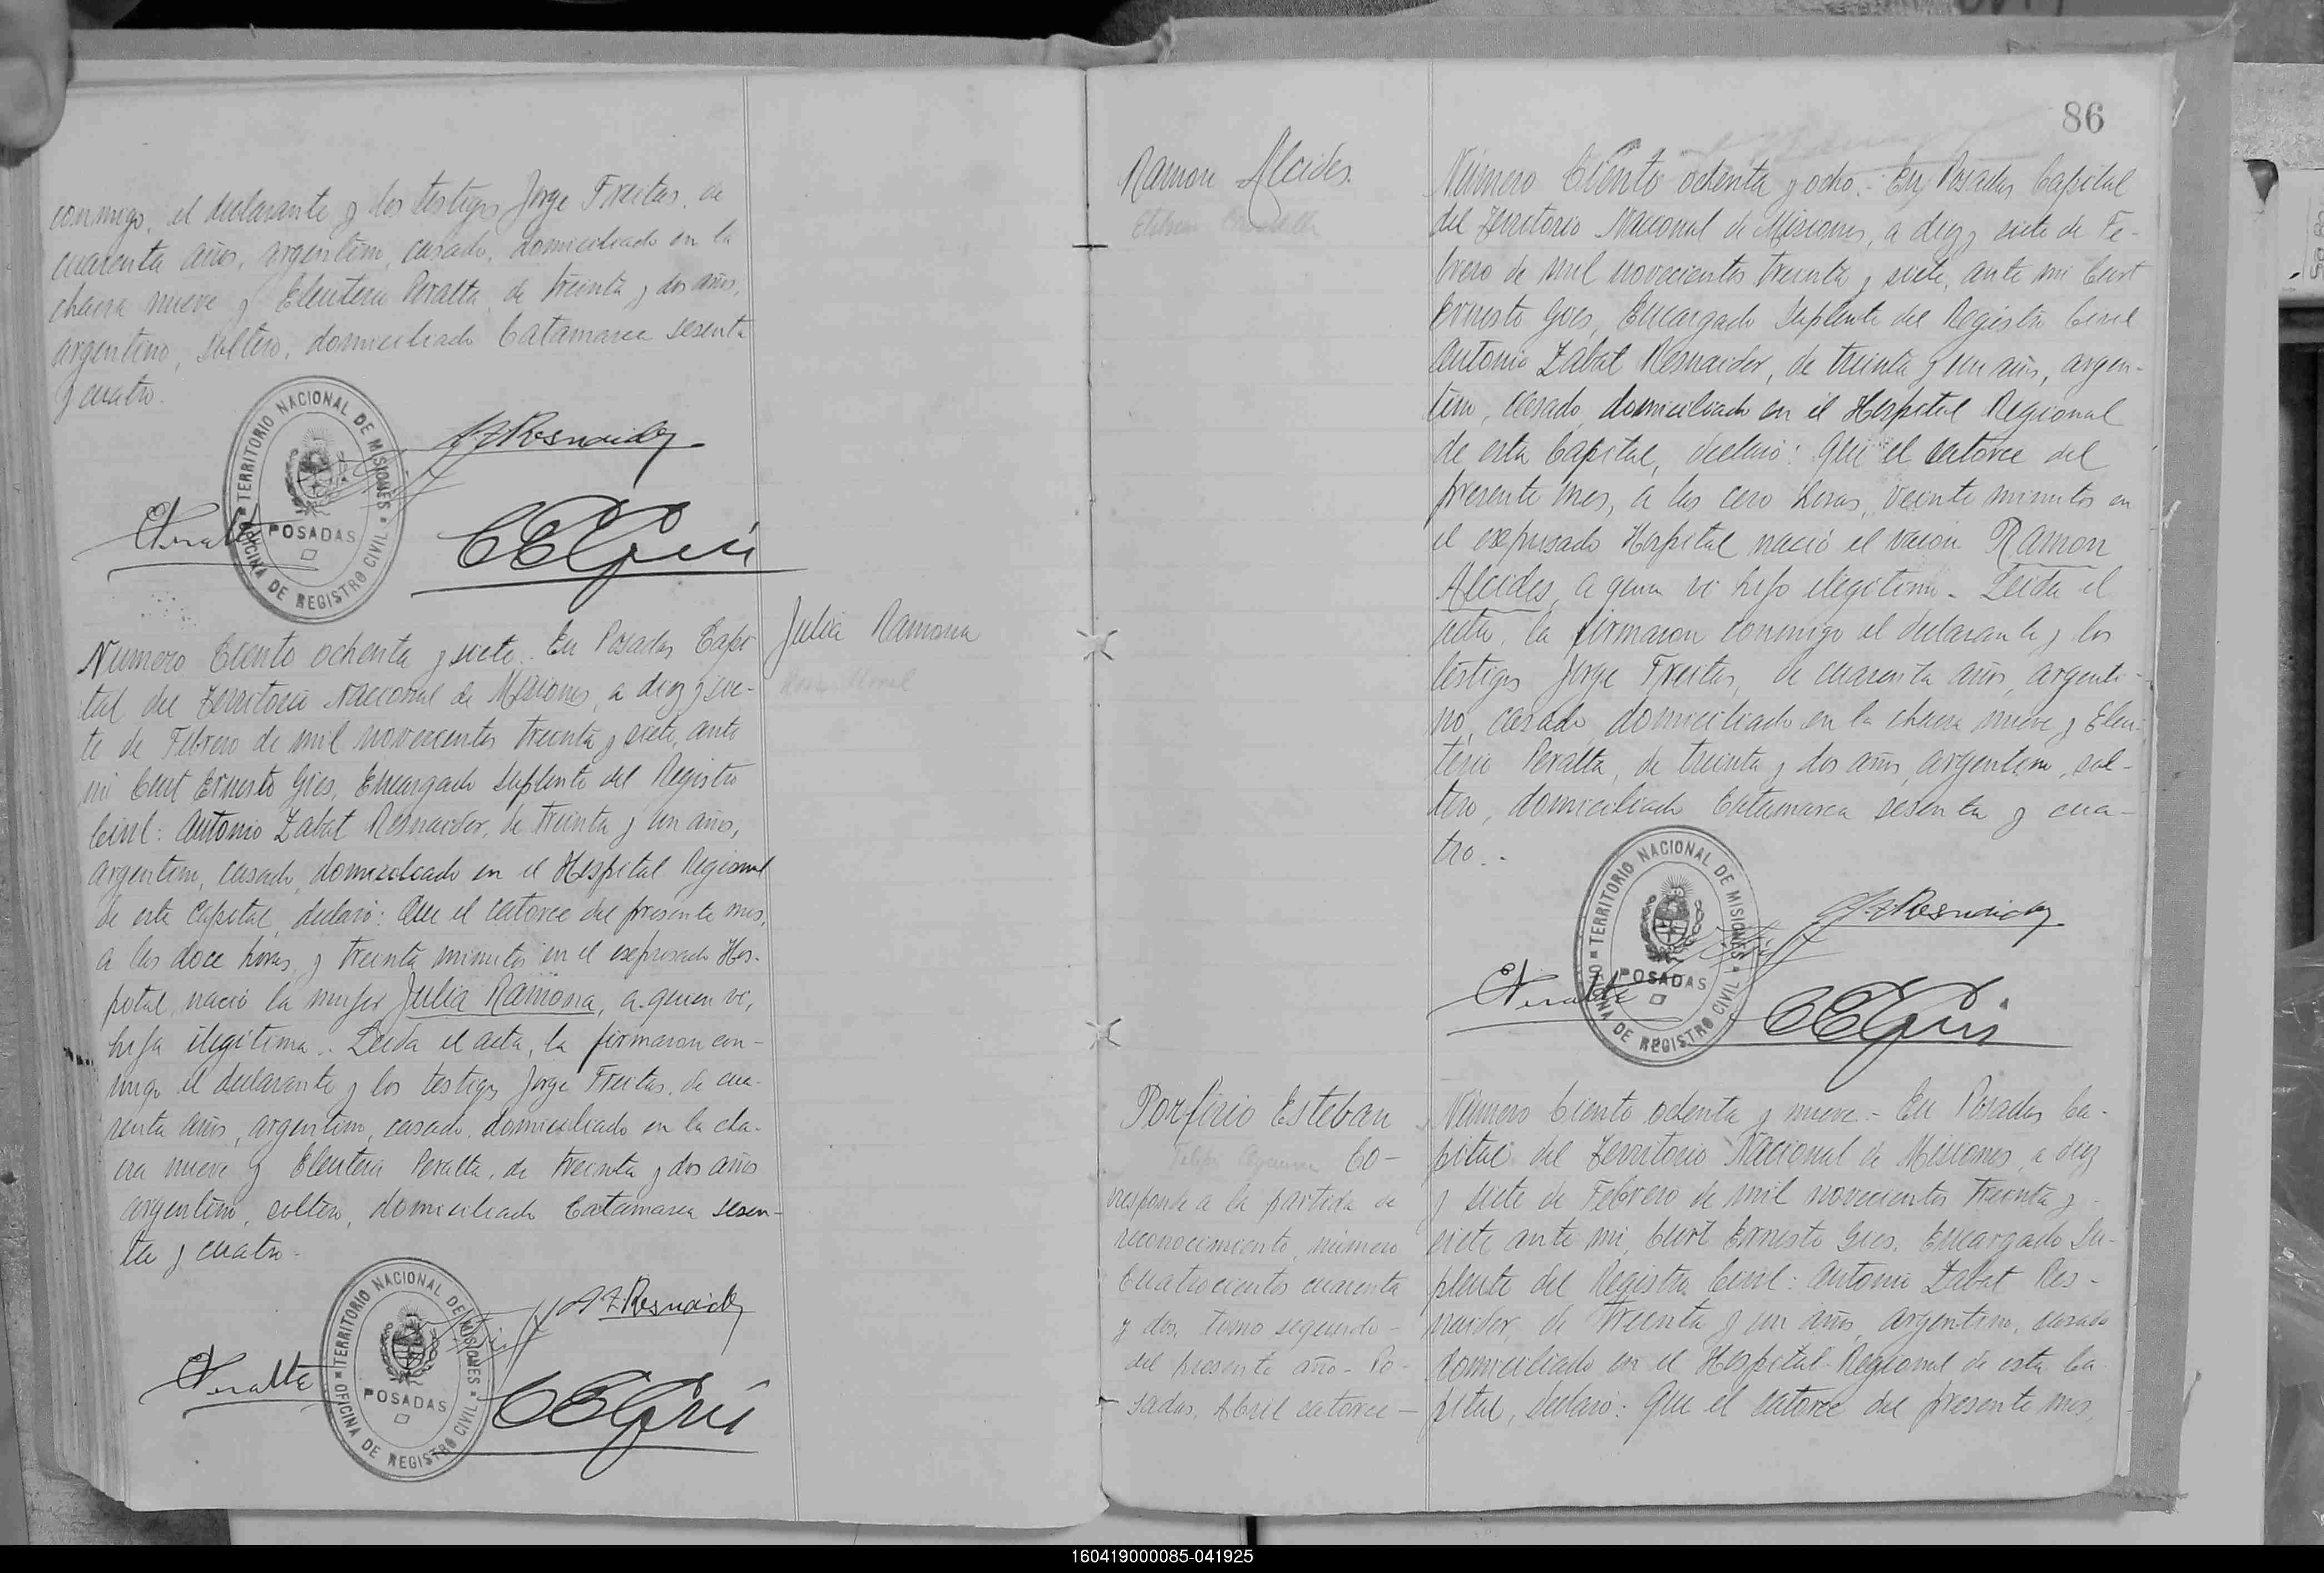 conmigo, el declarante y los testigos Jorge Freitas, de
cuarenta años, argentino, casado, domiciliado en la
chacra nueve y Eleuterio Peralta, de treinta y dos años,
argentino, soltero, domiciliado Catamarca sesenta
y cuatro.
TERRITORIO NACIONAL DE MISIONES
POSADAS
OFICINA DE REGISTRO CIVIL
A Z Resnaider
E Peralta
C E Gies
Julia Ramona
Número Ciento ochenta y siete. En Posadas Capi
tal del Territorio Nacional de Misiones, a diez y sie-
te de Febrero de mil novecientos treinta y siete, ante
mi Curt Ernesto Gies, Encargado Suplente del Registro
Civil: Antonio Zabat Resnaider, de treinta y un años,
argentino, casado, domiciliado en el Hospital Regional
de esta Capital, declaró: Que el catorce del presente mes,
a las doce horas, y treinta minutos en el expresado Hos-
pital, nació la mujer Julia Ramona, a quien vi,
hija ilegítima. Leida el acta, la firmaron con-
migo el declarante y los testigos Jorge Freitas, de cua-
renta años, argentino, casado, domiciliado en la cha-
cra nueve y Eleuterio Peralta, de treinta y dos años
argentino, soltero, domiciliado Catamarca sesen-
ta y cuatro.
TERRITORIO NACIONAL DE MISIONES
POSADAS
OFICINA DE REGISTRO CIVIL
A Z Resnaider
E Peralta
C E Gies
86
Ramon Alcides.
Número Ciento ochenta y ocho.- En Posadas Capital
del Territorio Nacional de Misiones, a diez y siete de Fe-
brero de mil novecientos treinta y siete, ante mi Curt
Ernesto Gies, Encargado Suplente del Registro Civil
Antonio Zabat Resnaider, de treinta y un años, argen-
tino, casado, domiciliado en el Hospital Regional
de esta Capital, declaró: Que el catorce del
presente mes, a las cero horas, veinte minutos en
el expresado Hospital nació el varon Ramon
Alcides, a quien vi hijo ilegítimo - Leida el
acta, la firmaron conmigo el declarante y los
testigos Jorge Freitas, de cuarenta años, argenti-
no, casado, domiciliado en la chacra nueve y Eleu-
terio Peralta, de treinta y dos años, argentino, sol-
tero, domiciliado Catamarca sesenta y cua-
tro.-
TERRITORIO NACIONAL DE MISIONES
POSADAS
OFICINA DE REGISTRO CIVIL
A. Z Resnaider
E Peralta
C E Gies
Porfirio Esteban
Co-
rresponde a la partida de
reconocimiento, número
Cuatrocientos cuarenta
y dos, tomo segundo -
del presente año - Po-
sadas, Abril catorce -
Número Ciento ochenta y nueve - En Posadas Ca-
pital del Territorio Nacional de Misiones, a diez
y siete de Febrero de mil novecientos treinta y
siete ante mi, Curt Ernesto Gies, Encargado Su-
plente del Registro Civil: Antonio Zabat Res-
naider, de treinta y un años, argentino, casado
domiciliado en el Hospital Regional de esta Ca-
pital, declaró: Que el catorce del presente mes,
160419000085-041925